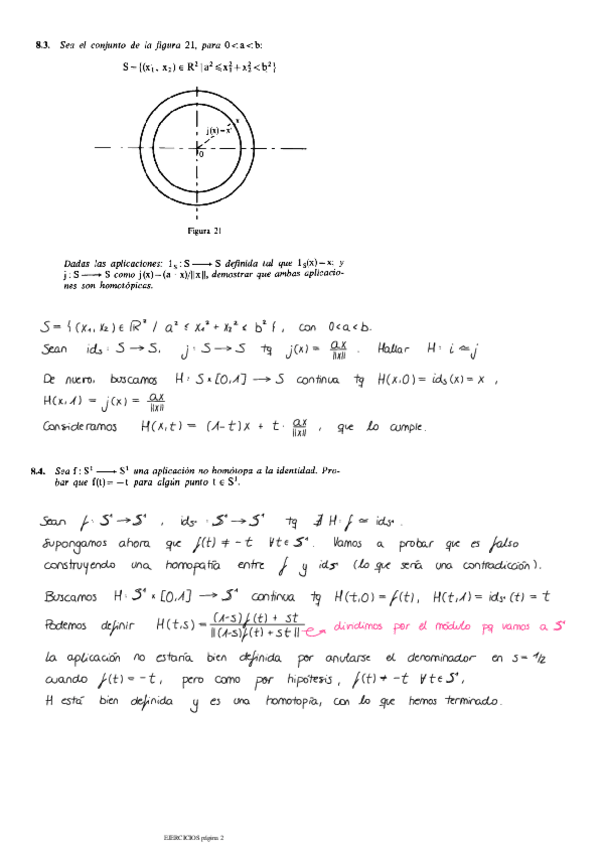 8.3. Sea el conjunto de la figura 21, para 0<a<b:
S={(x₁, x₂) ∈ R² | a² ⩽ x₁²+x₂² < b²}
x
j(x)=x'
0
Figura 21
Dadas las aplicaciones: 1ₛ : S ⟶ S definida tal que 1ₛ(x)=x; y
j : S ⟶ S como j(x)=(a · x)/||x||, demostrar que ambas aplicacio-
nes son homotópicas.
S = { (x₁, x₂) ∈ ℝ² / a² ≤ x₁² + x₂² < b² } , con 0<a<b.
Sean idₛ : S → S, j : S → S tq j(x) = ax/||x|| . Hallar H: i ≃ j
De nuevo, buscamos H : S × [0,1] → S continua tq H(x,0) = idₛ(x) = x ,
H(x,1) = j(x) = ax/||x||
Consideramos H(x,t) = (1-t)x + t · ax/||x|| , que lo cumple.
8.4. Sea f : S¹ ⟶ S¹ una aplicación no homótopa a la identidad. Pro-
bar que f(t) = −t para algún punto t ∈ S¹.
Sean f : S¹ → S¹ , id_S¹ : S¹ → S¹ tq ∄ H : f ≃ id_S¹ .
Supongamos ahora que f(t) ≠ -t ∀t ∈ S¹. Vamos a probar que es falso
construyendo una homopatía entre f y id_S¹ (lo que sería una contradicción).
Buscamos H : S¹ × [0,1] → S¹ continua tq H(t,0) = f(t), H(t,1) = id_S¹(t) = t
Podemos definir H(t,s) = ((1-s)f(t) + st)/||(1-s)f(t) + st|| dividimos por el módulo pq vamos a S¹
La aplicación no estaría bien definida por anularse el denominador en s = 1/2
cuando f(t) = -t , pero como por hipótesis , f(t) ≠ -t ∀t ∈ S¹,
H está bien definida y es una homotopía, con lo que hemos terminado.
EJERCICIOS página 2